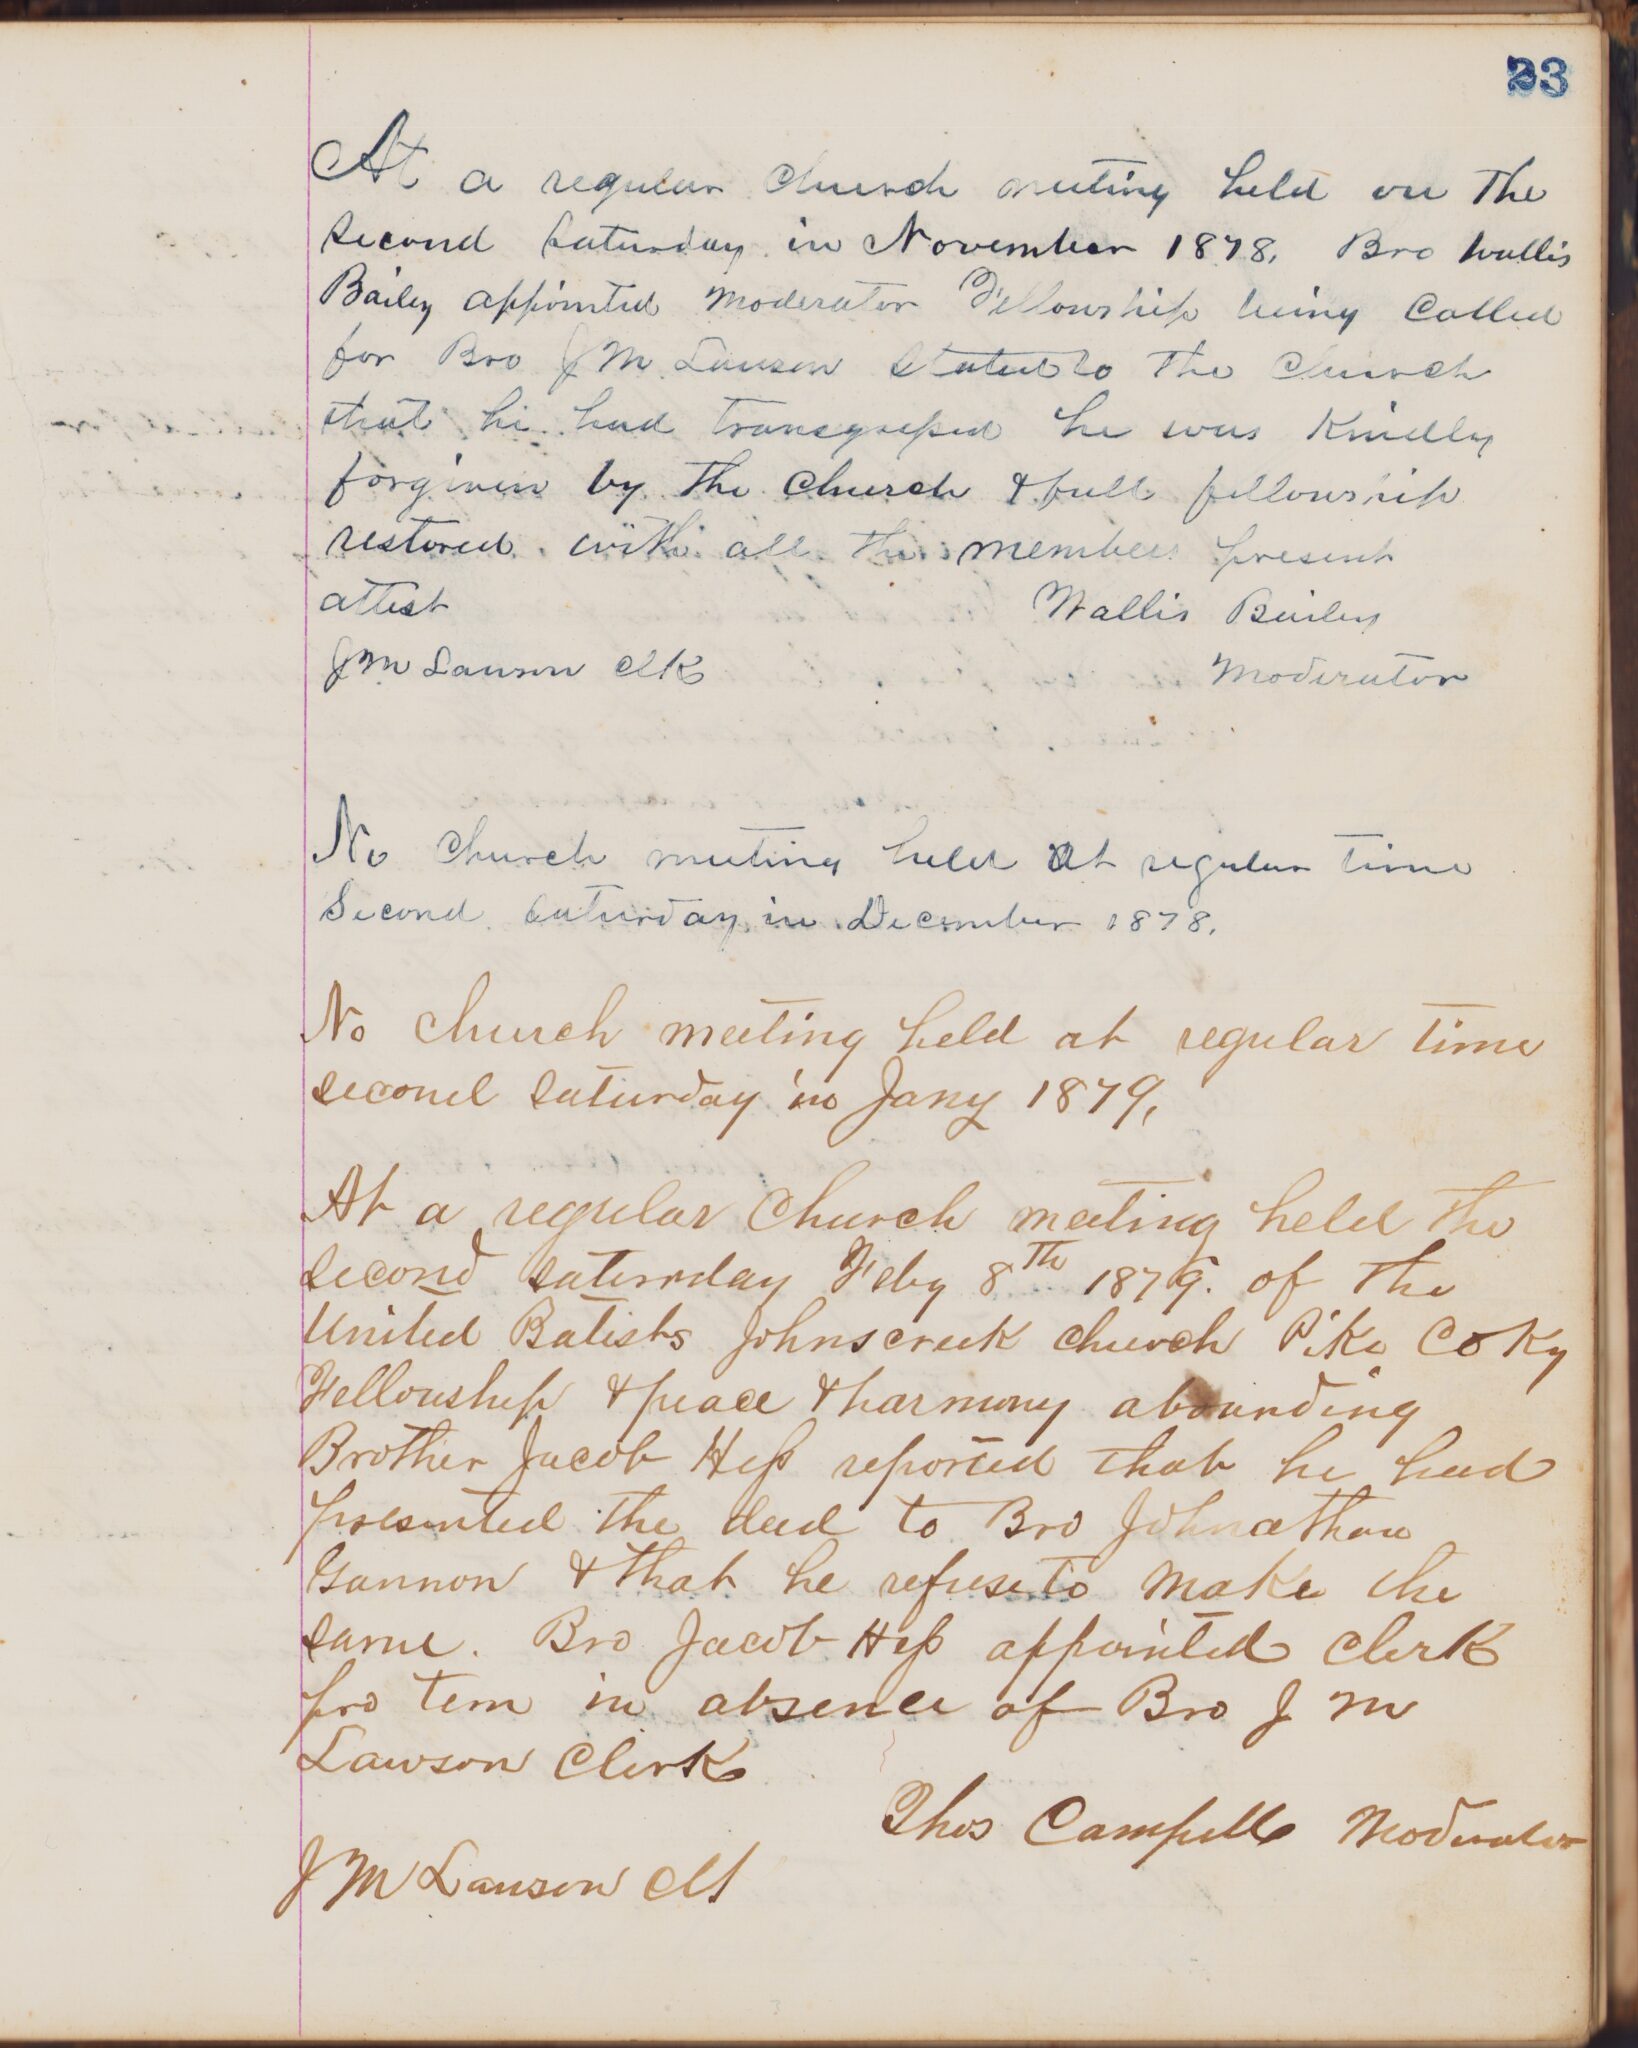 23
At a regular Church meeting held on the
Second Saturday in November 1878, Bro Wallis
Bailey appointed Moderator Fellowship being Called
for Bro J M Lawson Stated to the Church
that he had transgressed he was Kindly
forgiven by the Church & full fellowship
restored with all the members present
attest Wallis Bailey
J M Lawson Clk Moderator
No Church meeting held at regular time
Second Saturday in December 1878.
No church meeting held at regular time
second Saturday in Jany 1879,
At a regular Church meeting held the
Second Saturday Feby 8th 1879. of the
United Batists Johnscreek church Pike Co Ky
Fellowship & peace & harmony abounding
Brother Jacob Hess reported that he had
presented the deed to Bro Johnathan
Gannon & that he refuse to make the
same. Bro Jacob Hess appointed Clerk
pro tem in absence of Bro J M
Lawson Clerk
Thos Campell Moderator
J M Lawson Clk